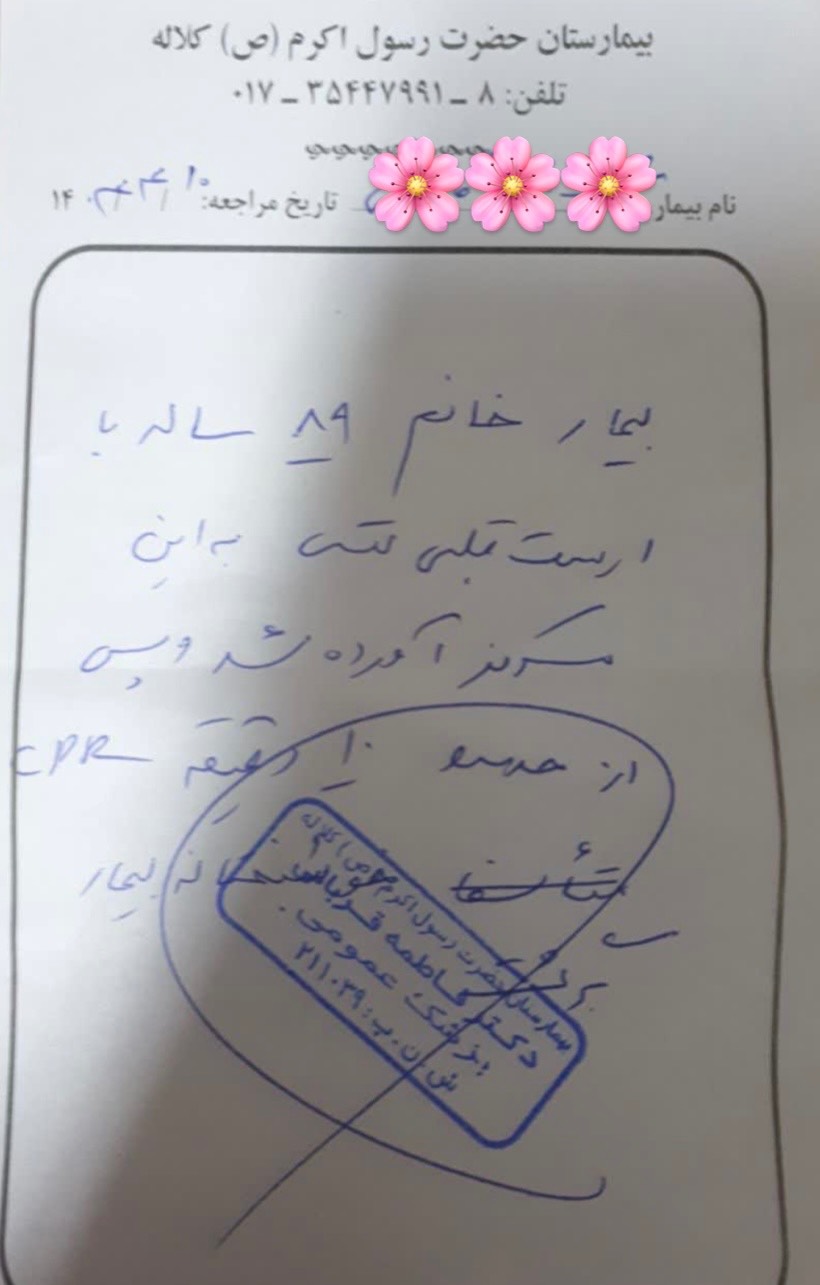 بیمارستان حضرت رسول اکرم (ص) کلاله
تلفن: ۸ ـ ۳۵۴۴۷۹۹۱ ـ ۰۱۷
نام بیمار تاریخ مراجعه: ۱۴۰
بیمار خانم ۸۹ ساله با
ارست قلبی تنفسی به این
مرکز آورده شد و پس
از حدود ۱۰ دقیقه CPR
متأسفانه بیمار
بیمارستان حضرت رسول اکرم (ص) کلاله
دکتر فاطمه
پزشک عمومی
ش.ن.پ: ۲۱۱۰۳۹